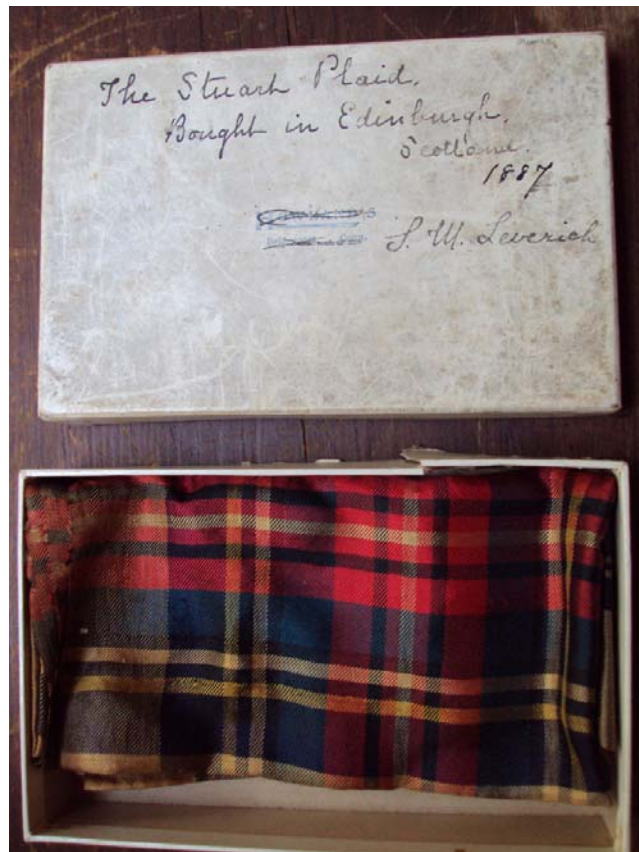 The Stuart Plaid.
Bought in Edinburgh.
Scotland.
1887
S. W. Leverich